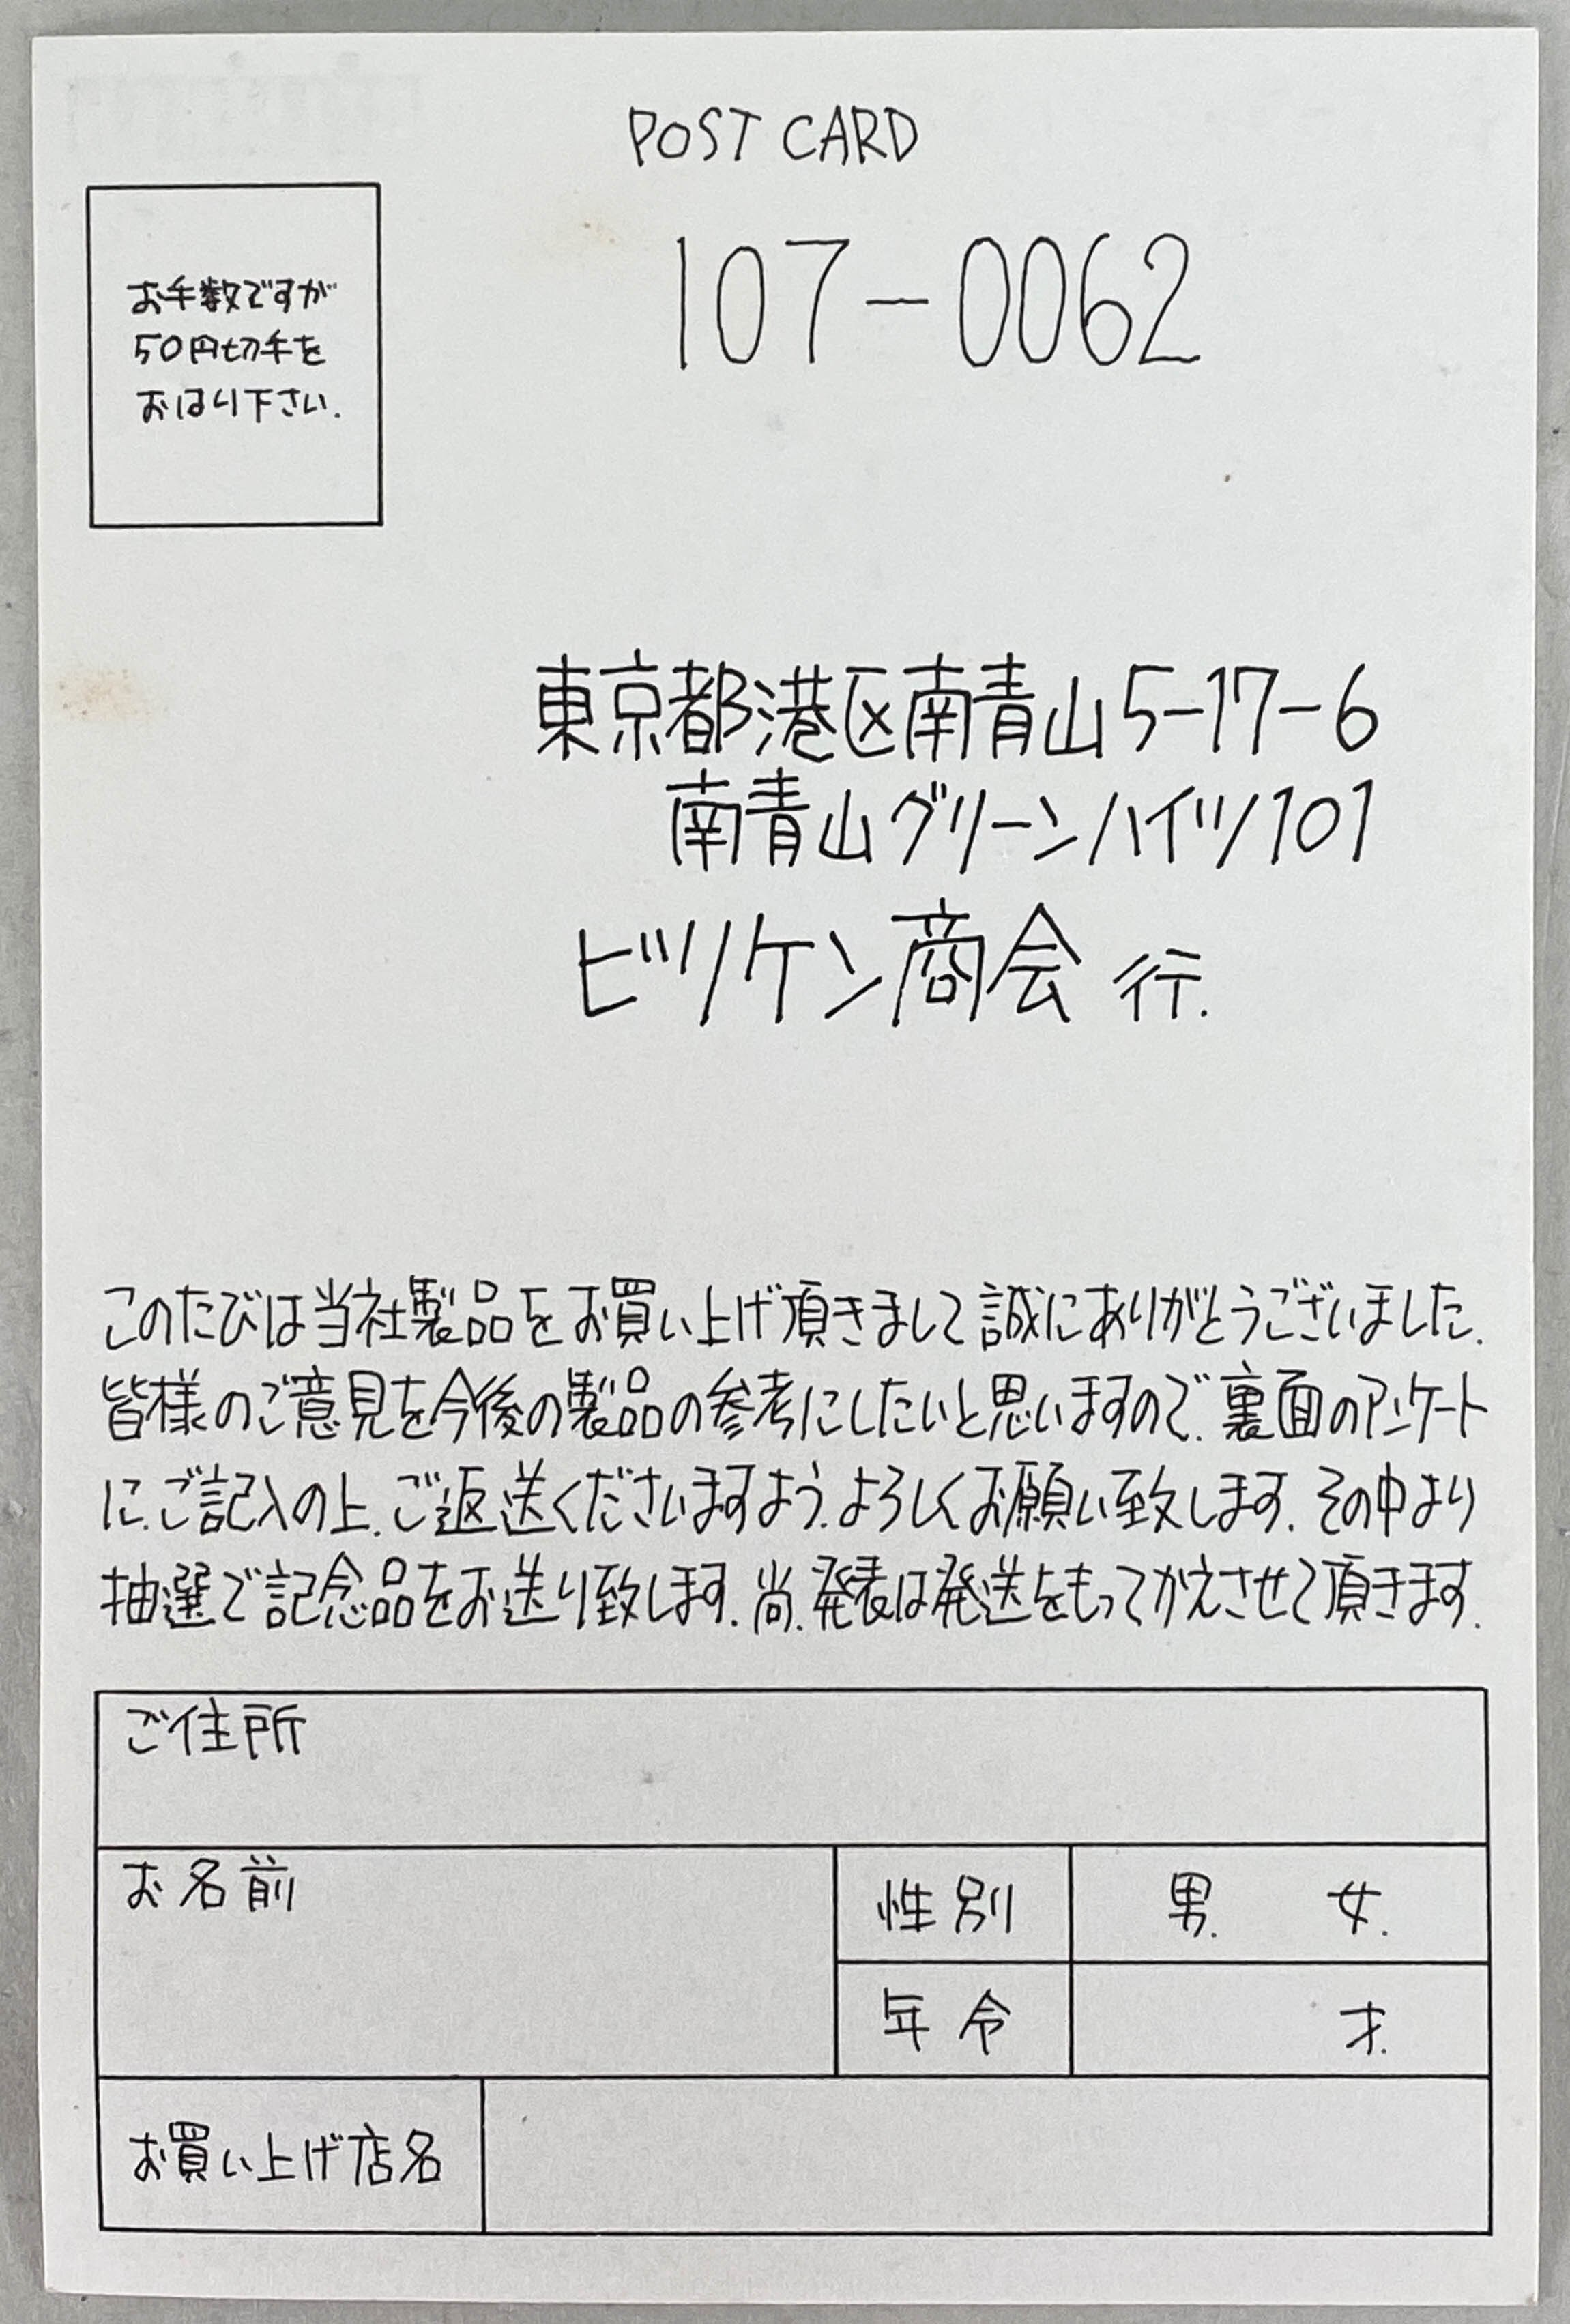 POST CARD
お手数ですが
50円切手を
おはり下さい.
107-0062
東京都港区南青山5-17-6
南青山グリーンハイツ101
ビリケン商会 行.
このたびは当社製品をお買い上げ頂きまして誠にありがとうございました.
皆様のご意見を今後の製品の参考にしたいと思いますので.裏面のアンケート
に.ご記入の上.ご返送くださいますよう.よろしくお願い致します.その中より
抽選で記念品をお送り致します.尚.発表は発送をもってかえさせて頂きます.
ご住所
お名前
性別 男. 女.
年令 才.
お買い上げ店名